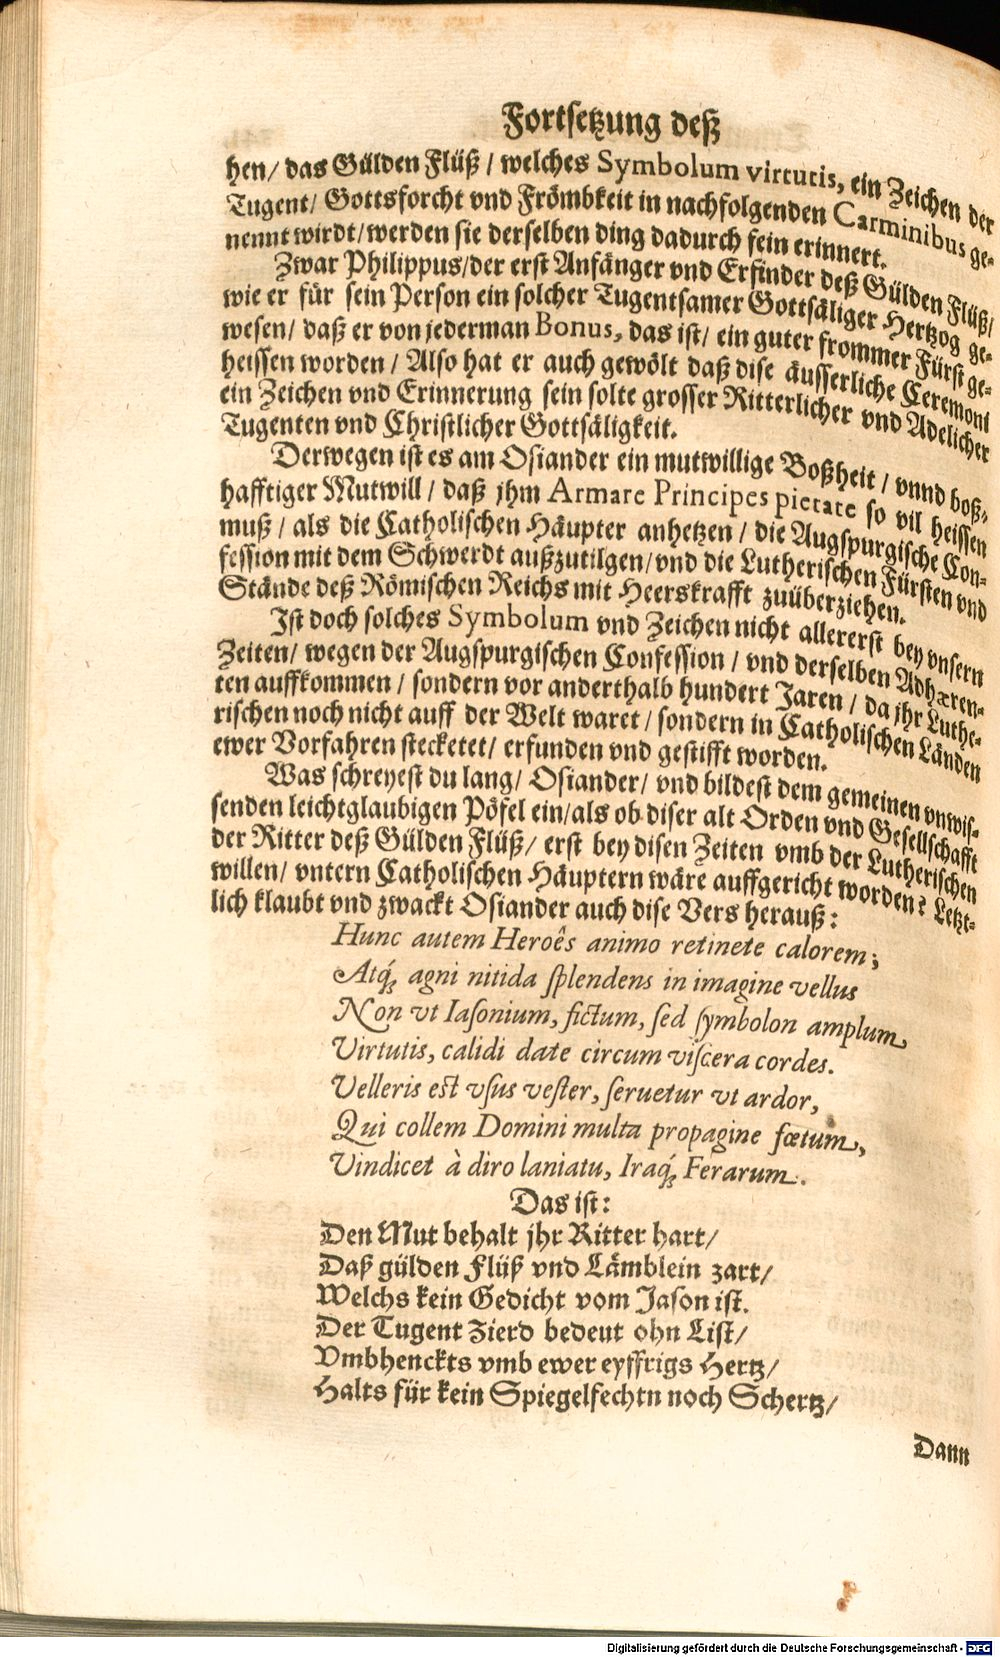 Fortsetzung deß
hen/ das Gülden Flüß / welches Symbolum virtutis, ein Zeichen der
Tugent/ Gottsforcht vnd Frömbkeit in nachfolgenden Carminibus ge-
nennt wirdt/ werden sie derselben ding dadurch fein erinnert.
Zwar Philippus/ der erst Anfänger vnd Erfinder deß Gülden Flüß/
wie er für sein Person ein solcher Tugentsamer Gottsäliger Hertzog ge-
wesen/ daß er von jederman Bonus, das ist/ ein guter frommer Fürst ge-
heissen worden / Also hat er auch gewölt daß dise äusserliche Ceremoni
ein Zeichen vnd Erinnerung sein solte grosser Ritterlicher vnd Adelicher
Tugenten vnd Christlicher Gottsäligkeit.
Derwegen ist es am Osiander ein mutwillige Boßheit / vnnd boß-
hafftiger Mutwill / daß jhm Armare Principes pietate so vil heissen
muß / als die Catholischen Häupter anhetzen / die Augspurgische Con-
fession mit dem Schwerdt außzutilgen/ vnd die Lutherischen Fürsten vnd
Stände deß Römischen Reichs mit Heerskrafft zuüberziehen.
Ist doch solches Symbolum vnd Zeichen nicht allererst bey vnsern
Zeiten/ wegen der Augspurgischen Confession / vnd derselben Adhæren-
ten auffkommen / sondern vor anderthalb hundert Jaren / da jhr Luthe-
rischen noch nicht auff der Welt waret / sondern in Catholischen Länden
ewer Vorfahren stecketet/ erfunden vnd gestifft worden.
Was schreyest du lang/ Osiander/ vnd bildest dem gemeinen vnwis-
senden leichtglaubigen Pöfel ein/ als ob diser alt Orden vnd Gesellschafft
der Ritter deß Gülden Flüß/ erst bey disen Zeiten vmb der Lutherischen
willen/ vntern Catholischen Häuptern wäre auffgericht worden? Letzt-
lich klaubt vnd zwackt Osiander auch dise Vers herauß:
Hunc autem Heroês animo retinete calorem;
Atq́; agni nitida splendens in imagine vellus
Non vt Iasonium, fictum, sed symbolon amplum
Virtutis, calidi date circum viscera cordes.
Velleris est vsus vester, seruetur vt ardor,
Qui collem Domini multa propagine fœtum,
Vindicet à diro laniatu, Iraq́; Ferarum.
Das ist:
Den Mut behalt jhr Ritter hart/
Daß gülden Flüß vnd Lämblein zart/
Welchs kein Gedicht vom Jason ist.
Der Tugent Zierd bedeut ohn List/
Vmbhenckts vmb ewer eyffrigs Hertz/
Halts für kein Spiegelfechtn noch Schertz/
Dann
Digitalisierung gefördert durch die Deutsche Forschungsgemeinschaft - DFG